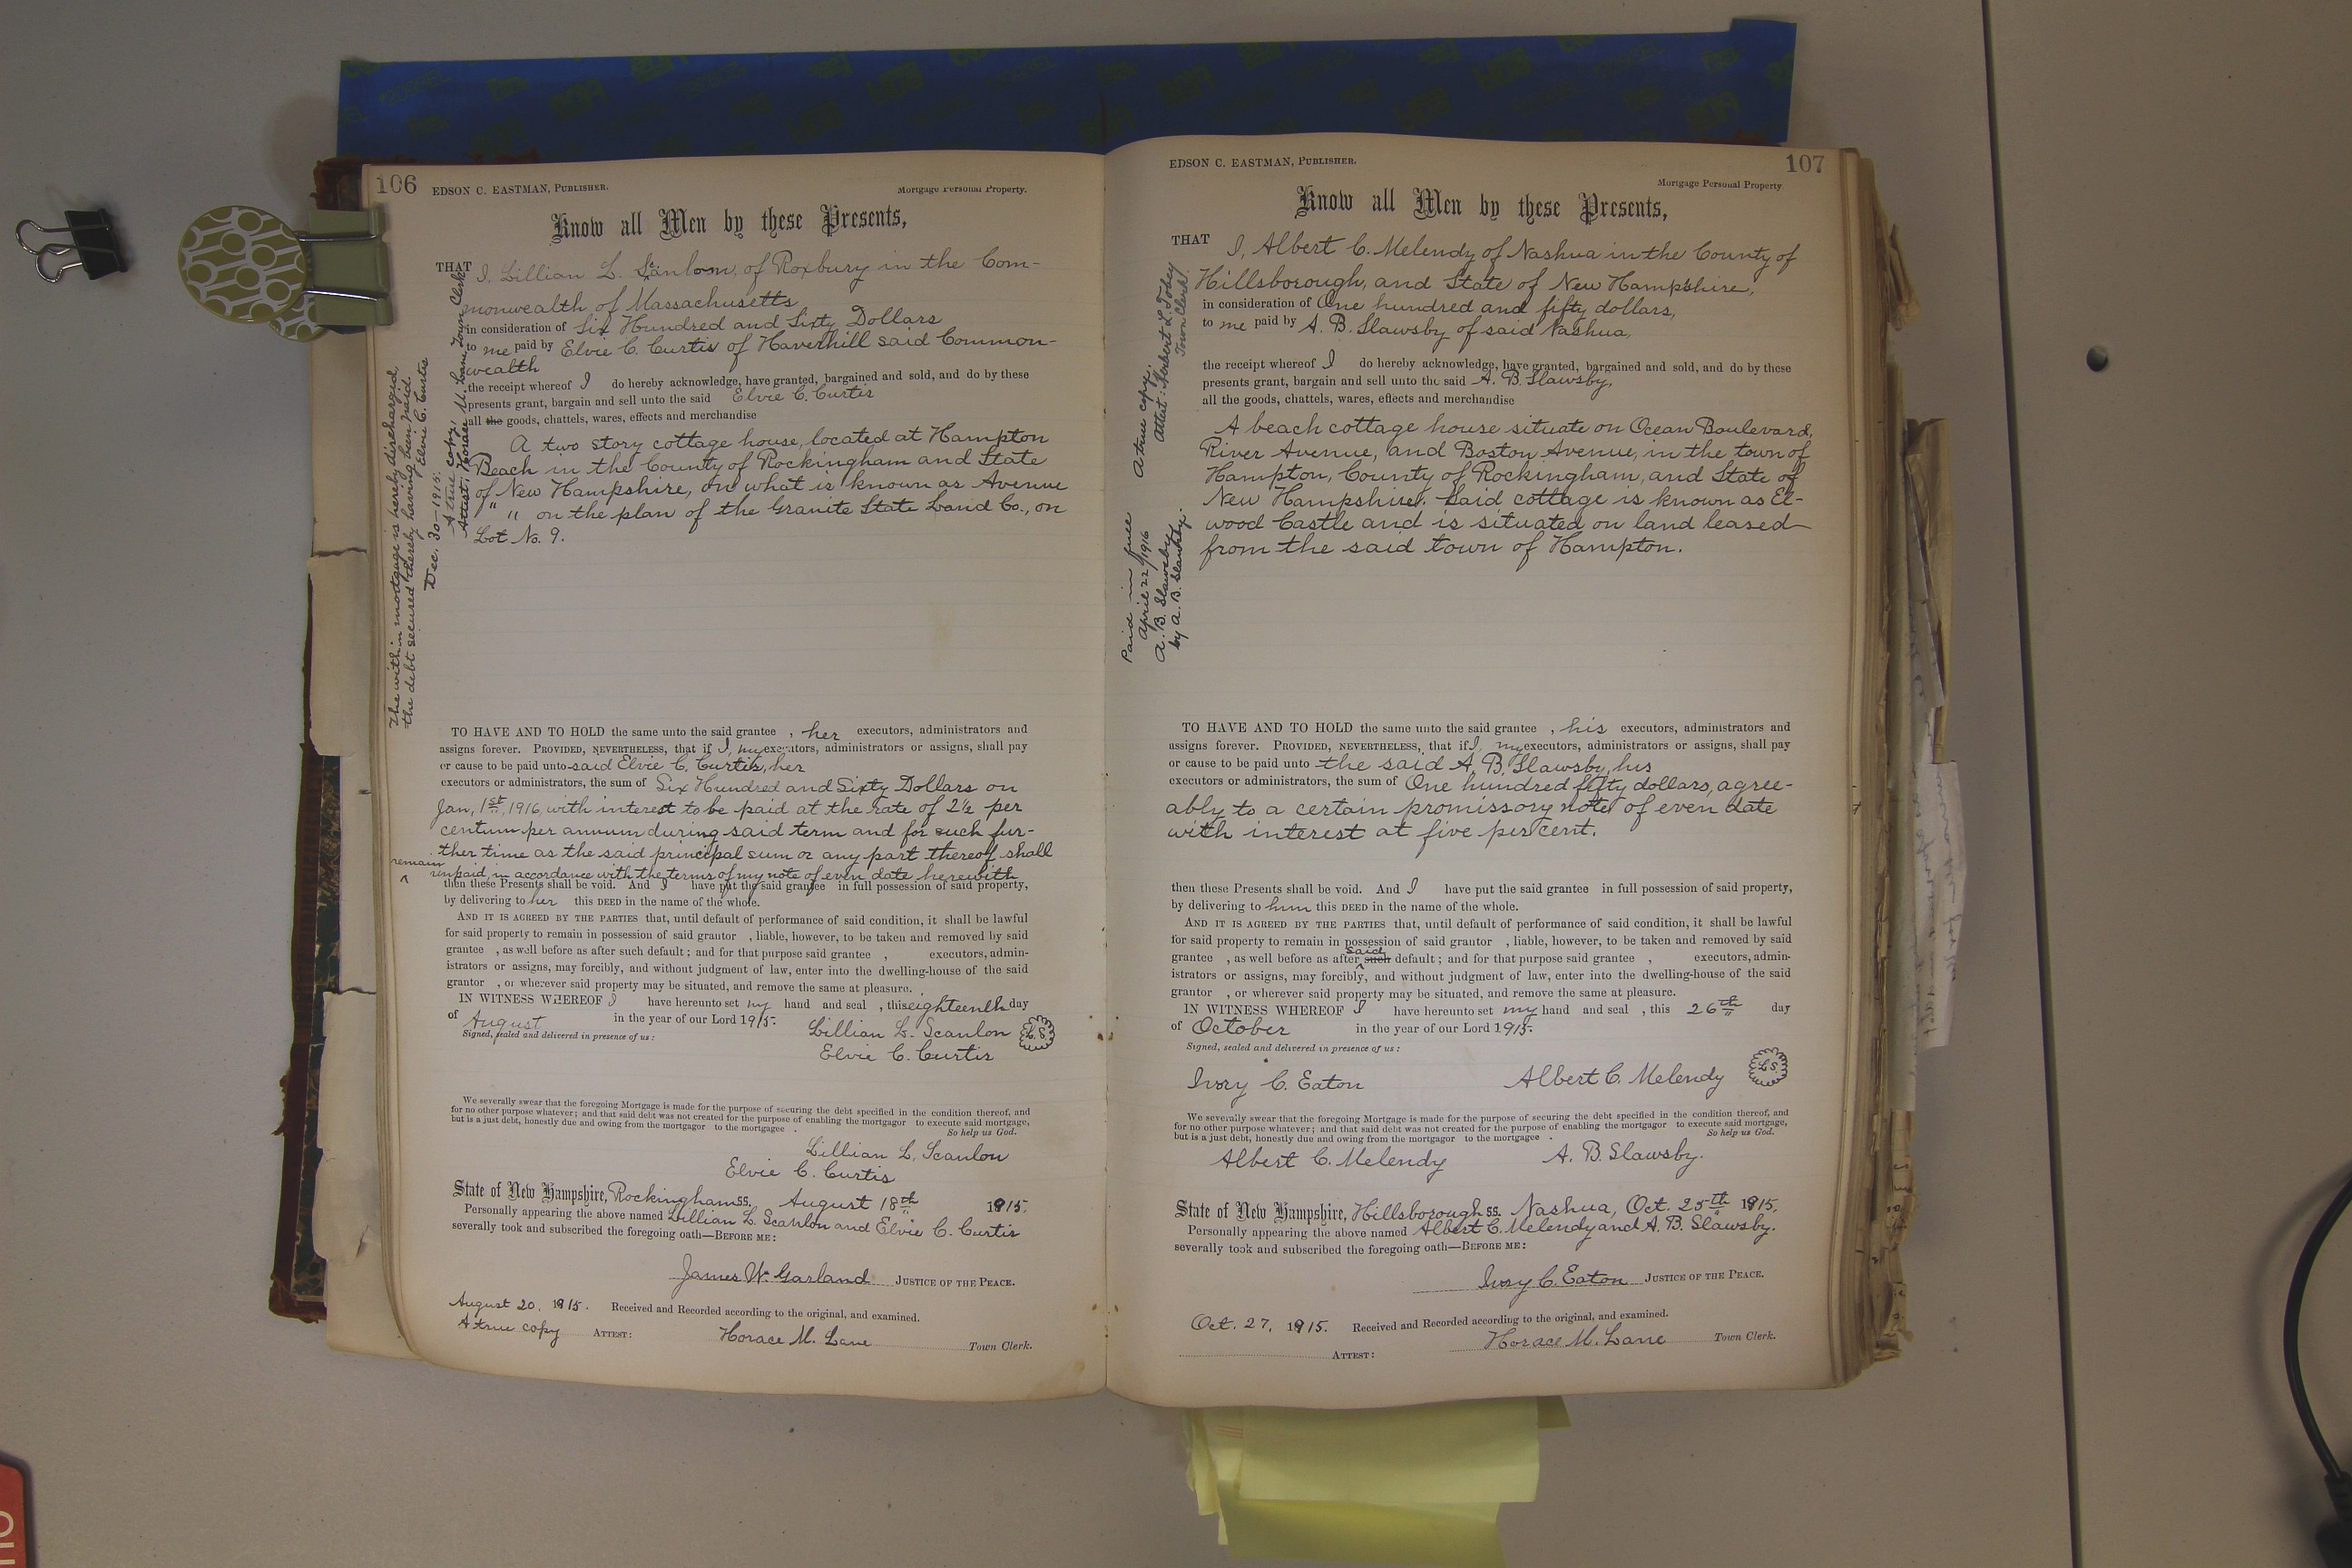 106 EDSON C. EASTMAN, PUBLISHER. Mortgage Personal Property.
Know all Men by these Presents,
THAT I, Lillian L. Scanlon, of Roxbury in the Com-
monwealth of Massachusetts
in consideration of Six Hundred and Sixty Dollars
to me paid by Elvie C. Curtis of Haverhill said Common-
wealth
the receipt whereof I do hereby acknowledge, have granted, bargained and sold, and do by these
presents grant, bargain and sell unto the said Elvie C. Curtis
all the goods, chattels, wares, effects and merchandise
A two story cottage house, located at Hampton
Beach in the County of Rockingham and State
of New Hampshire, on what is known as Avenue
" " on the plan of the Granite State Land Co., on
Lot No. 9.
The within mortgage is hereby discharged,
the debt secured thereby having been paid.
Elvie C. Curtis
Dec. 30-1915.
A true copy,
Attest; Horace M. Lane, Town Clerk
TO HAVE AND TO HOLD the same unto the said grantee , her executors, administrators and
assigns forever. PROVIDED, NEVERTHELESS, that if I, my executors, administrators or assigns, shall pay
or cause to be paid unto said Elvie C. Curtis, her
executors or administrators, the sum of Six Hundred and Sixty Dollars on
Jan, 1st, 1916, with interest to be paid at the rate of 2½ per
centum per annum during said term and for such fur-
ther time as the said principal sum or any part thereof shall
remain
^ unpaid, in accordance with the terms of my note of even date herewith
then these Presents shall be void. And I have put the said grantee in full possession of said property,
by delivering to her this DEED in the name of the whole.
AND IT IS AGREED BY THE PARTIES that, until default of performance of said condition, it shall be lawful
for said property to remain in possession of said grantor , liable, however, to be taken and removed by said
grantee , as well before as after such default; and for that purpose said grantee , executors, admin-
istrators or assigns, may forcibly, and without judgment of law, enter into the dwelling-house of the said
grantor , or wherever said property may be situated, and remove the same at pleasure.
IN WITNESS WHEREOF I have hereunto set my hand and seal , this eighteenth day
of August in the year of our Lord 1915.
Signed, sealed and delivered in presence of us:
Lillian L. Scanlon L.S.
Elvie C. Curtis
We severally swear that the foregoing Mortgage is made for the purpose of securing the debt specified in the condition thereof, and
for no other purpose whatever; and that said debt was not created for the purpose of enabling the mortgagor to execute said mortgage,
but is a just debt, honestly due and owing from the mortgagor to the mortgagee . So help us God.
Lillian L. Scanlon
Elvie C. Curtis
State of New Hampshire, Rockingham SS. August 18th 1915.
Personally appearing the above named Lillian L. Scanlon and Elvie C. Curtis
severally took and subscribed the foregoing oath—BEFORE ME:
James W. Garland JUSTICE OF THE PEACE.
August 20, 1915. Received and Recorded according to the original, and examined.
A true copy ATTEST: Horace M. Lane Town Clerk.
EDSON C. EASTMAN, PUBLISHER. 107
Mortgage Personal Property
Know all Men by these Presents,
THAT I, Albert C. Melendy of Nashua in the County of
Hillsborough, and State of New Hampshire,
in consideration of One hundred and fifty dollars,
to me paid by A. B. Slawsby of said Nashua,
the receipt whereof I do hereby acknowledge, have granted, bargained and sold, and do by these
presents grant, bargain and sell unto the said A. B. Slawsby,
all the goods, chattels, wares, effects and merchandise
A beach cottage house situate on Ocean Boulevard,
River Avenue, and Boston Avenue, in the town of
Hampton, County of Rockingham, and State of
New Hampshire. Said cottage is known as El-
wood Castle and is situated on land leased
from the said town of Hampton.
Paid in full
April 22/1916
A. B. Slawsby
by A. B. Slawsby.
A true copy.
Attest: Herbert L. Tobey
Town Clerk.
TO HAVE AND TO HOLD the same unto the said grantee , his executors, administrators and
assigns forever. PROVIDED, NEVERTHELESS, that if I, my executors, administrators or assigns, shall pay
or cause to be paid unto the said A. B. Slawsby, his
executors or administrators, the sum of One hundred fifty dollars, agree-
ably to a certain promissory note of even date
with interest at five per cent.
then these Presents shall be void. And I have put the said grantee in full possession of said property,
by delivering to him this DEED in the name of the whole.
AND IT IS AGREED BY THE PARTIES that, until default of performance of said condition, it shall be lawful
for said property to remain in possession of said grantor , liable, however, to be taken and removed by said
said
grantee , as well before as after such default; and for that purpose said grantee , executors, admin-
istrators or assigns, may forcibly, and without judgment of law, enter into the dwelling-house of the said
grantor , or wherever said property may be situated, and remove the same at pleasure.
IN WITNESS WHEREOF I have hereunto set my hand and seal , this 26th day
of October in the year of our Lord 1915.
Signed, sealed and delivered in presence of us:
Ivory C. Eaton Albert C. Melendy L.S.
We severally swear that the foregoing Mortgage is made for the purpose of securing the debt specified in the condition thereof, and
for no other purpose whatever; and that said debt was not created for the purpose of enabling the mortgagor to execute said mortgage,
but is a just debt, honestly due and owing from the mortgagor to the mortgagee . So help us God.
Albert C. Melendy A. B. Slawsby.
State of New Hampshire, Hillsborough SS. Nashua, Oct. 25th 1915,
Personally appearing the above named Albert C. Melendy and A. B. Slawsby.
severally took and subscribed the foregoing oath—BEFORE ME:
Ivory C. Eaton JUSTICE OF THE PEACE.
Oct. 27, 1915. Received and Recorded according to the original, and examined.
ATTEST: Horace M. Lane Town Clerk.